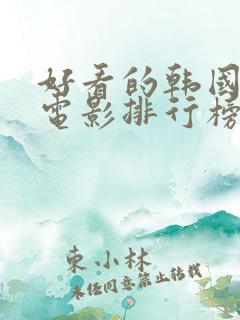 好看的韩國
電影排行榜
東小林
未经同意禁止转载